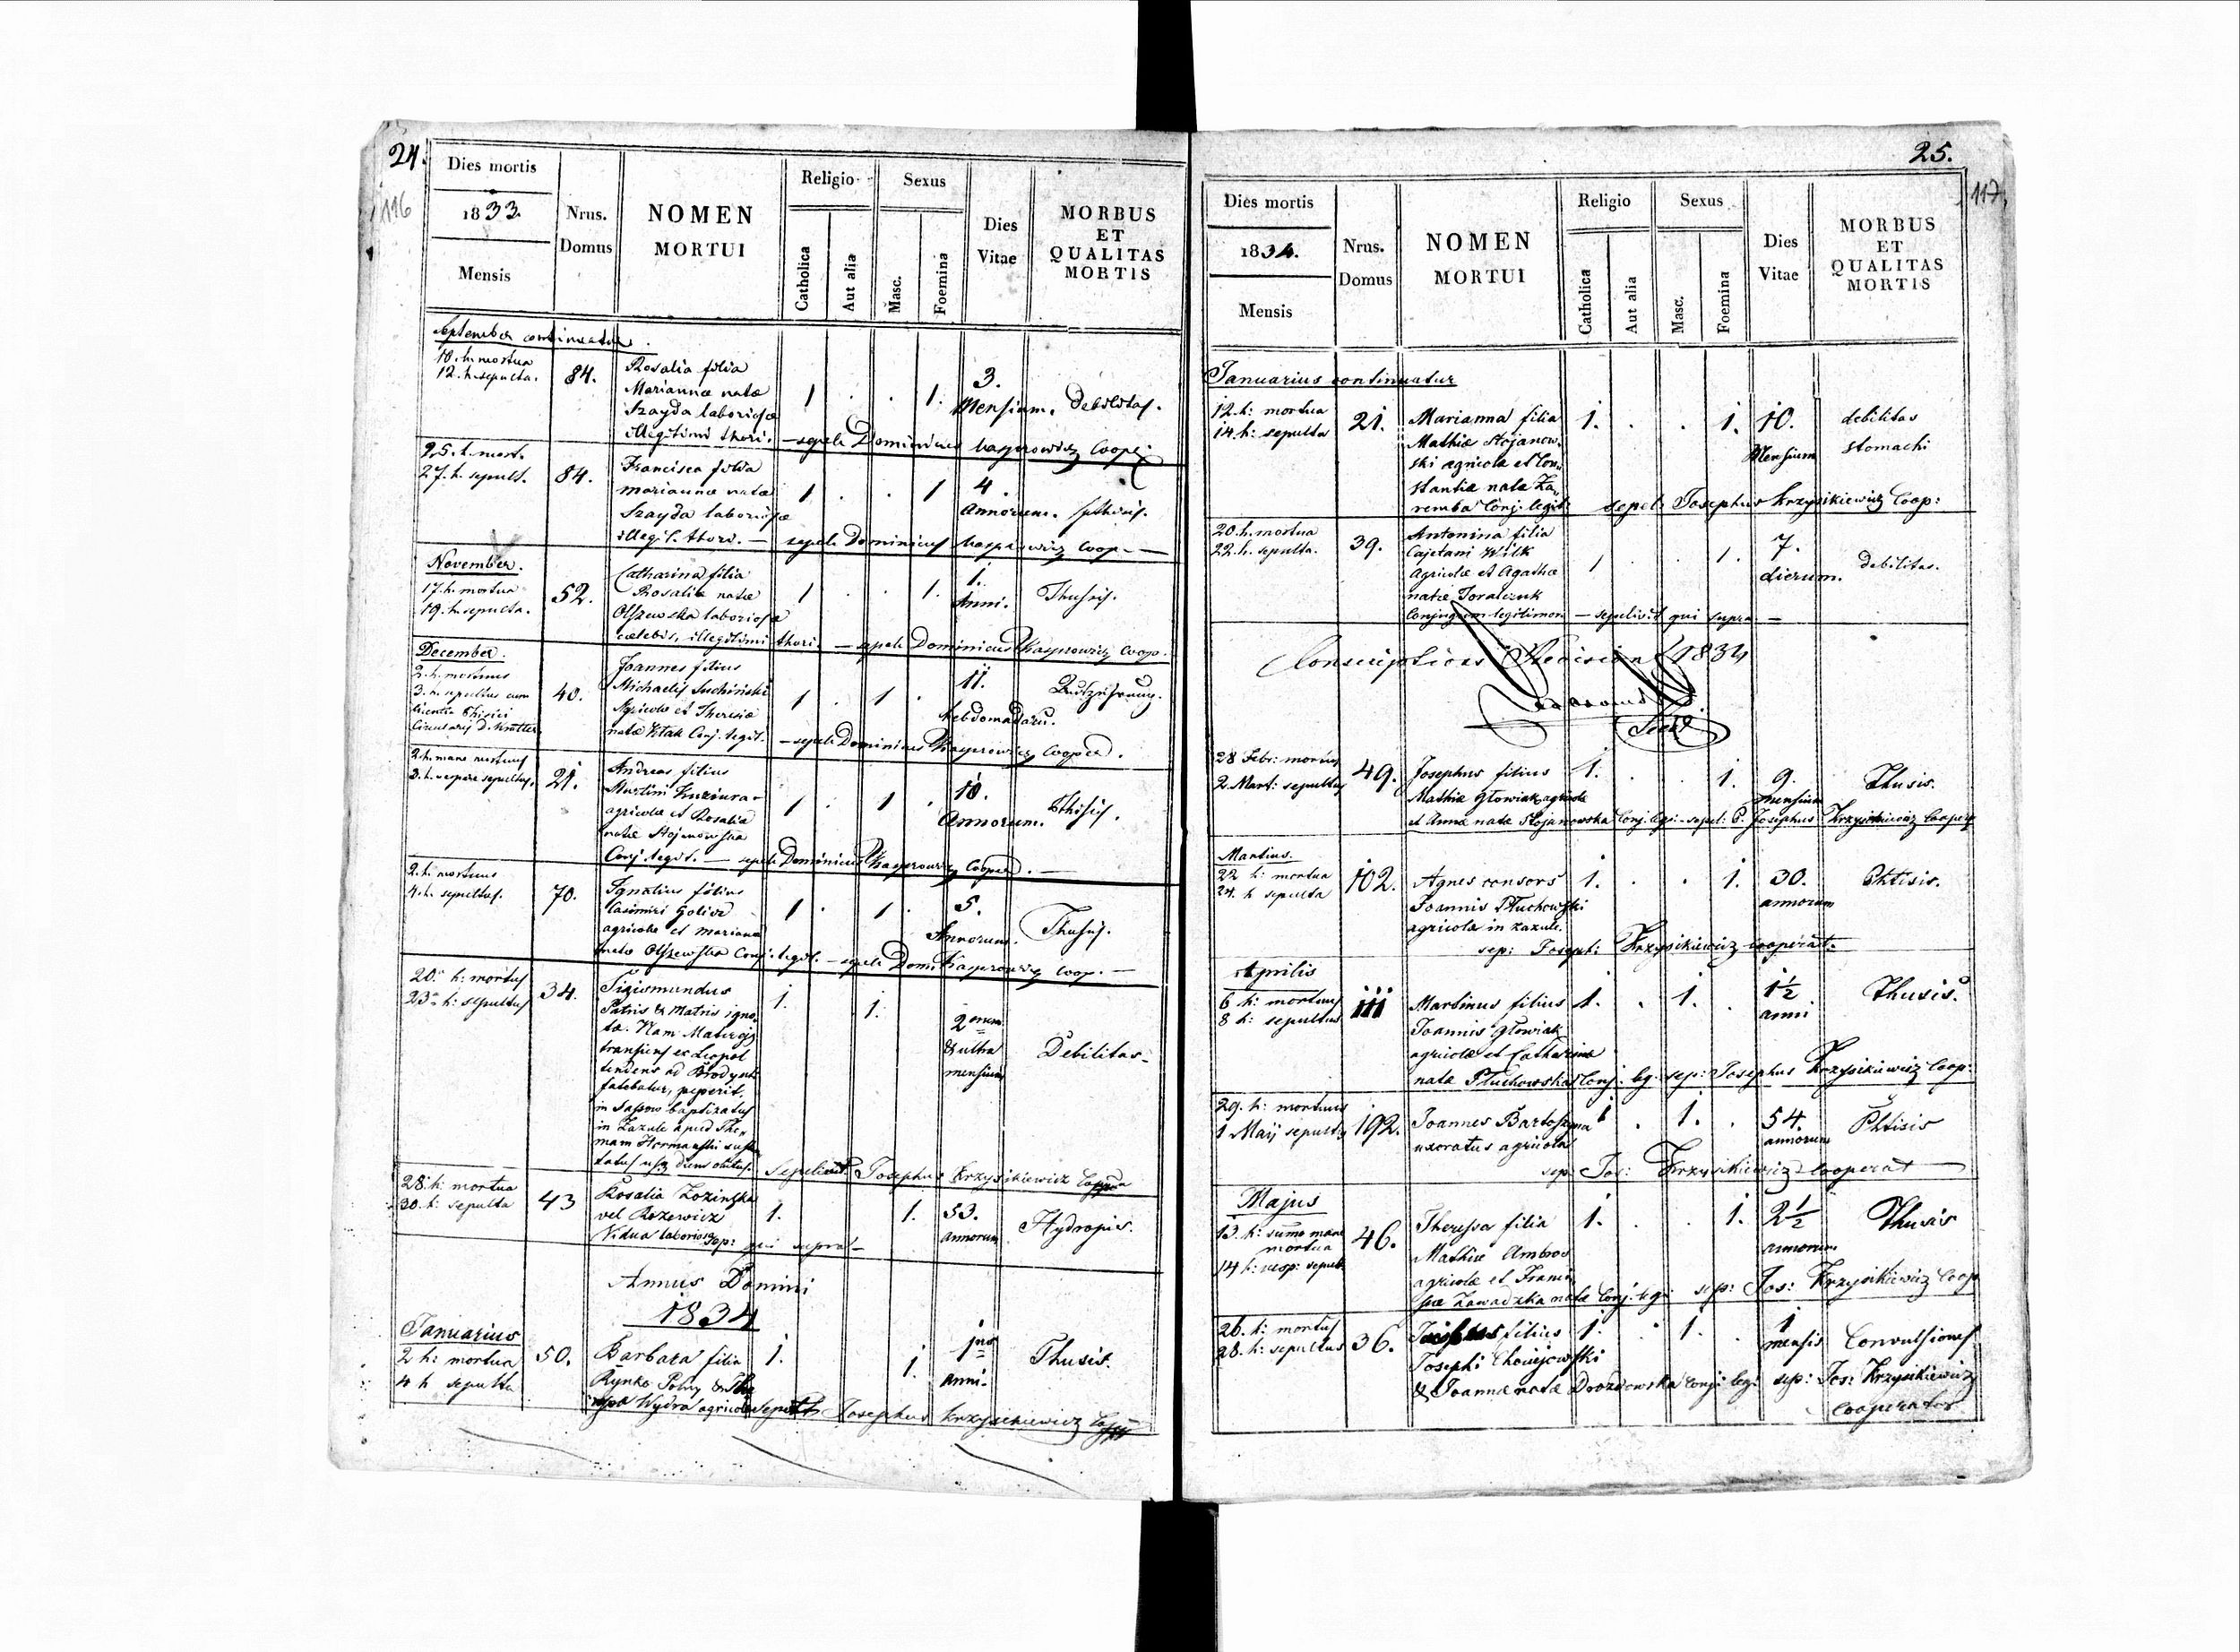 24.
116
Dies mortis
1833.
Mensis
Nrus.
Domus
NOMEN
MORTUI
Religio
Catholica
Aut alia
Sexus
Masc.
Foemina
Dies
Vitae
MORBUS
ET
QUALITAS
MORTIS
September continuatur.
10. h. mortua
12. h. sepulta.
84.
Rosalia filia
Mariannæ natæ
Szayda laboriosæ
illegitimi thori. — sepeli Dominicus Kasprowicz Coop.
1 . . 1.
3.
Mensium.
debilitas.
25. h. mort.
27. h. sepult.
84.
Francisca filia
Mariannæ natæ
Szayda laboriosæ
illegit. thori. — sepeli Dominicus Kasprowicz Coop. —
1 . . 1
4.
Annorum.
November.
17. h. mortua
19. h. sepulta.
52.
Catharina filia
Rosaliæ natæ
Olszewska laboriosæ
cælebis, illegitimi thori. — sepeli Dominicus Kasprowicz Coop.
1 . . 1.
1.
Anni.
Thusis.
December.
2. h. mortuus
3. h. sepultus cum
licentia Phisici
Circularis D. Kratter
40.
Joannes filius
Michaelis Suchiński
Agricolæ et Theresiæ
natæ Witak Conj. legit. — sepeli Dominicus Kasprowicz Cooper.
1 . 1 .
11.
hebdomadaru.
2. h. mane mortuus
3. h. vespere sepultus.
21.
Andreas filius
Martini Kuziura
agricolæ et Rosaliæ
natæ Stojanowska
Conj. legit. — sepeli Dominicus Kasprowicz Cooper. —
1 . 1 .
10.
Annorum.
Phtisis.
2. h. mortuus
4. h. sepultus.
70.
Ignatius filius
Casimiri Goliat
agricolæ et Mariannæ
natæ Olszewska Conj. legit. — sepeli Domi. Kasprowicz Coop. —
1 . 1 .
5.
Annorum.
Thusis.
20. h: mortus
23. h: sepultus
34.
Sigismundus
Patris & Matris igno-
ta. Nam Mater ejus
transiens ex Leopol
tendens ad Brody uti
fatebatur, peperit,
in Sassow baptizatus
in Zazule apud Tho-
mam Hermanski susten
tatus usq dum obitus. Sepelivit Josephus Krzysikiewicz
1. 1.
2 orum
& ultra
mensium
Debilitas
28. h: mortua
30. h: sepulta
43
Rosalia Lozinska
vel Rozewicz
Vidua laboriosa sep: qui supra —
1. 1.
53.
annorum
Hydropis.
Annus Domini
1834
Januarius
2 h: mortua
4 h sepulta
50.
Barbara filia
Rynko Polny &
Wydra agricolæ Sepelit Josephus Krzysikiewicz
1. 1.
1
anni.
Thusis.
25.
117
Dies mortis
1834.
Mensis
Nrus.
Domus
NOMEN
MORTUI
Religio
Catholica
Aut alia
Sexus
Masc.
Foemina
Dies
Vitae
MORBUS
ET
QUALITAS
MORTIS
Januarius continuatur
12. h: mortua
14. h: sepulta
21.
Marianna filia
Mathiæ Stojanow-
ski agricolæ et Con-
stantiæ natæ Za-
remba Conj. legit. sepel: Josephus Krzysikiewicz Coop:
1. . . 1.
10.
Mensium
debilitas
stomachi
20. h. mortua
22. h. sepulta.
39.
Antonina filia
Cajetani Wilk
Agricolæ et Agathæ
natæ Joralczuk
Conjugum legitimoru — sepelivit qui supra —
1 . . 1.
7.
dierum.
debilitas.
Conscriptions Revision 1834
28 Febr: mortus
2. Mart: sepultus
49.
Josephus filius
Mathiæ Głowiak agricolæ
et Anna natæ Stojanowska Conj: legi: sepel: P. Josephus Krzysikiewicz Cooper
1. . . 1.
9.
mensium
Thusis.
Martius.
22 h: mortua
24. h sepulta
102.
Agnes consors
Joannis Płuchowski
agricola in Zazule.
sep: Joseph: Krzysikiewicz cooperat.
1. . . 1.
30.
annorum
Phtisis.
Aprilis
6 h: mortuus
8 h: sepultus
111
Martinus filius
Joannis Głowiak
agricolæ et Catharinæ
natæ Płuchowska Conj. leg. sep: Josephus Krzysikiewicz Coop:
1. . 1. .
1½
anni
Thusis.
29. h: mortuus
1 Maij sepultus
192.
Joannes Bartoszyna
uxoratus agricola
sep: Jos: Krzysikiewicz cooperat —
1 . 1. .
54.
annorum
Phtisis
Majus
13. h: sumo mane
mortua
14 h: vesp: sepult
46.
Theressa filia
Mathiæ Ambros
agricolæ et Franci-
scæ Zawadzka natæ Conj: legi: sep: Jos: Krzysikiewicz Coop
1. . . 1.
2½
annorum
Thusis
26. h: mortus
28. h: sepultus
36.
filius
Josephi
& Joannæ natæ Drozdowska conj: legi: sep: Jos: Krzysikiewicz
cooperator
1. . 1. .
1
mensis
Convulsiones